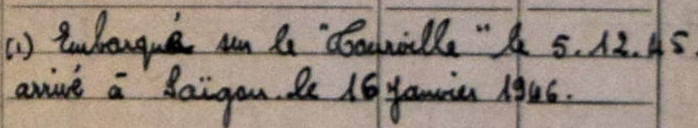 (1) Embarqué sur le "Tourville" le 5.12.45.
arrivé à Saïgon le 16 Janvier 1946.